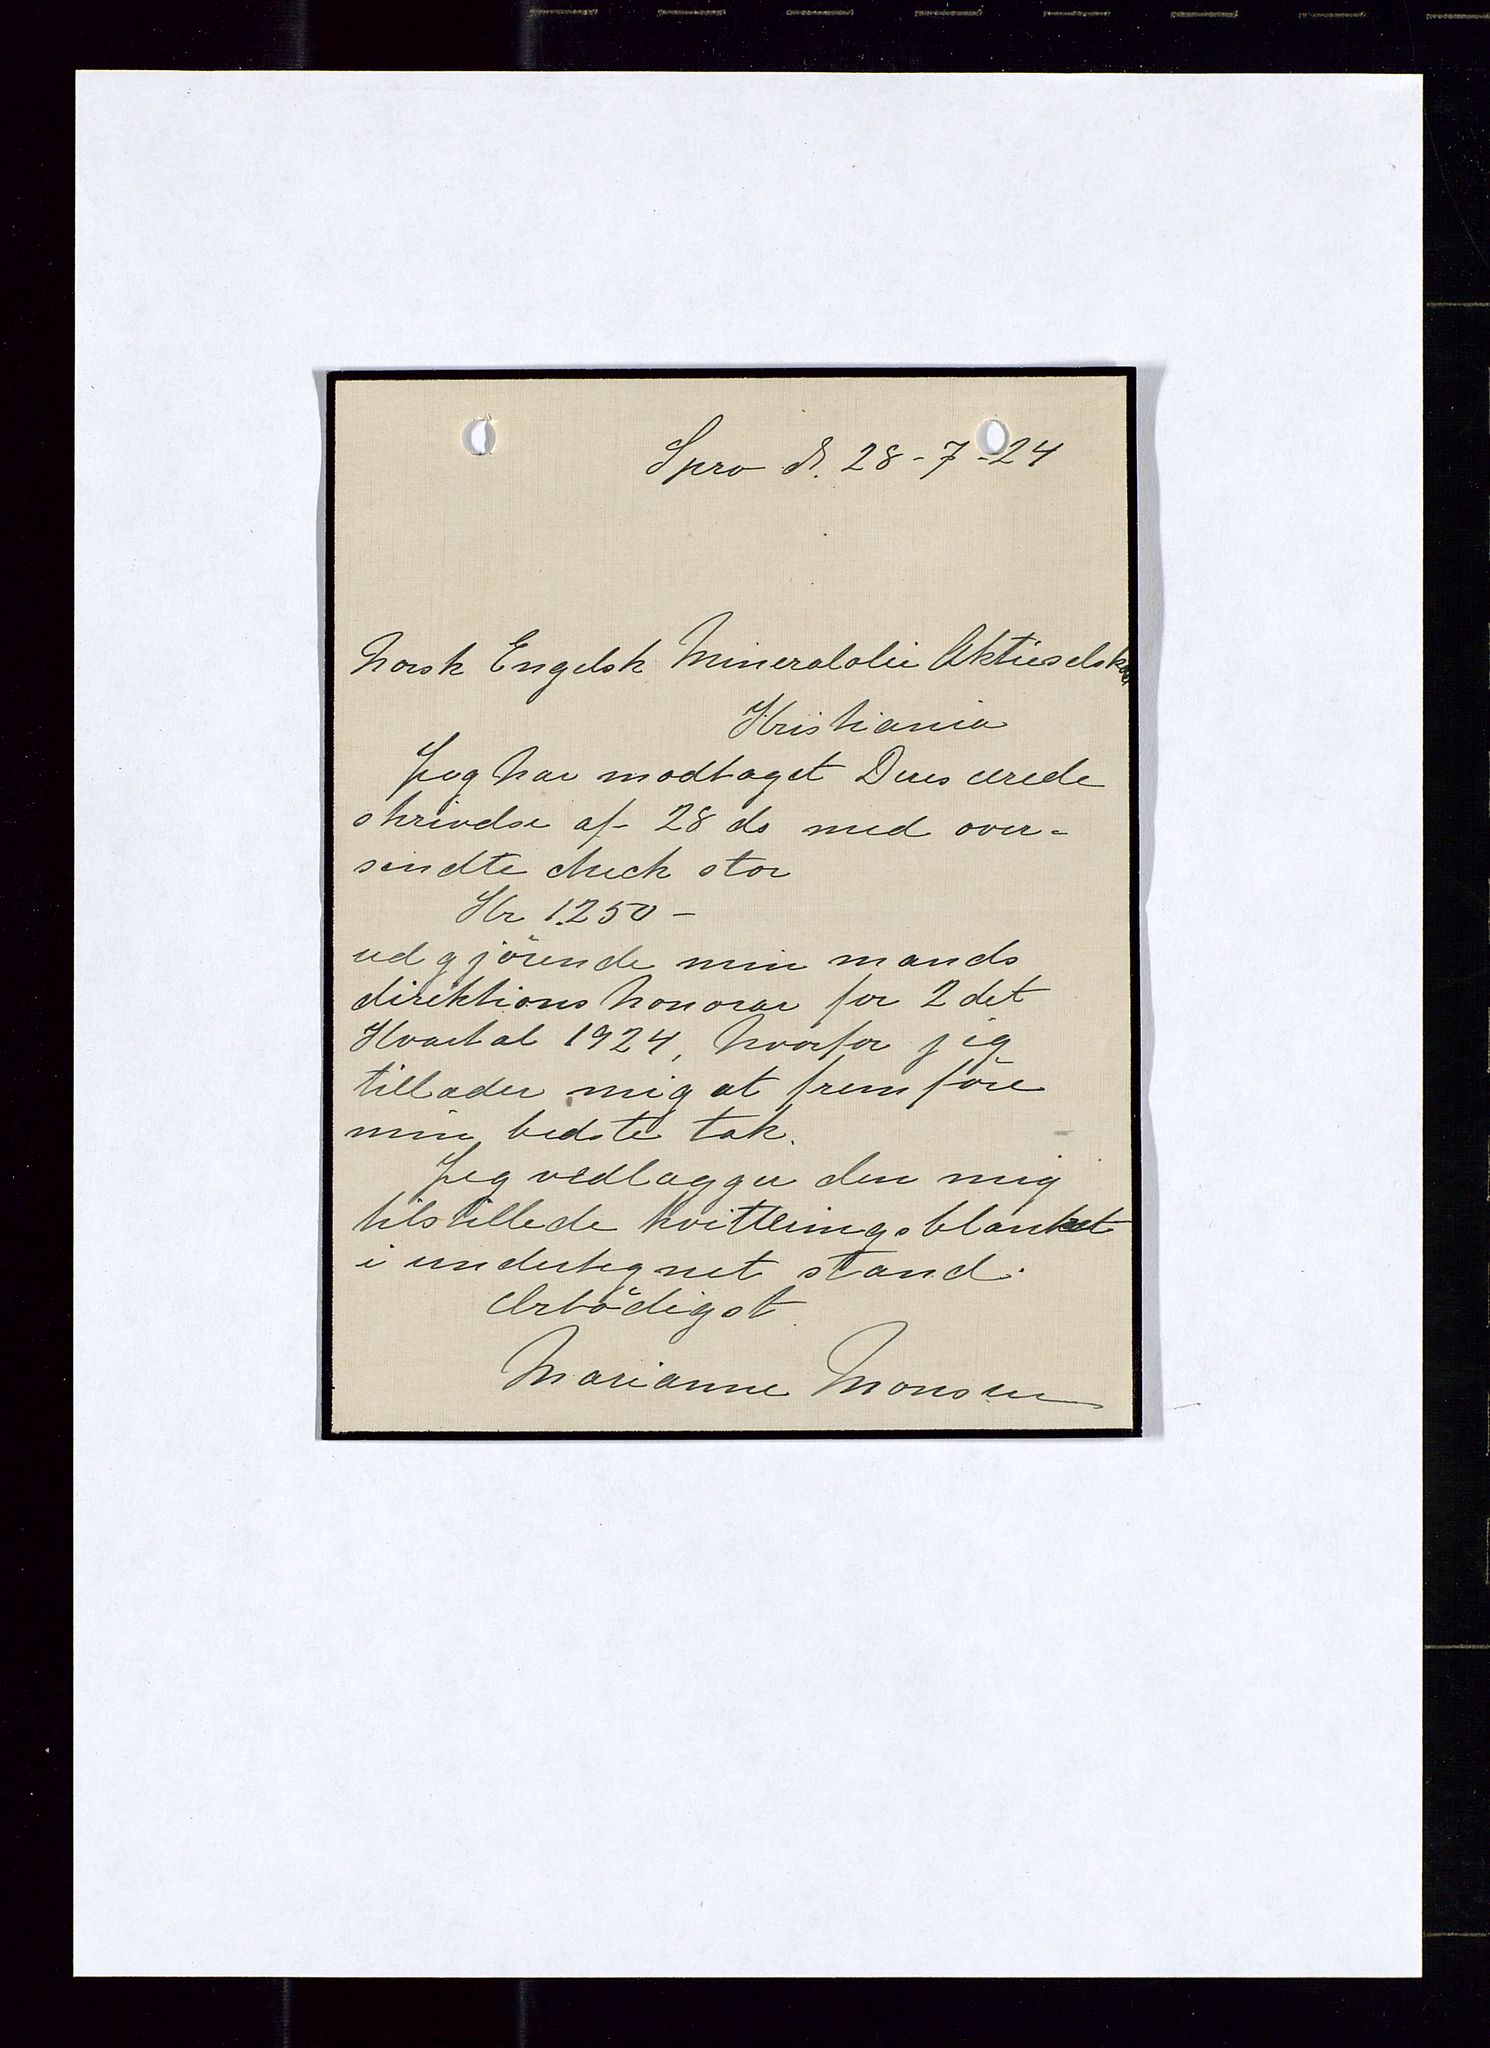 Spro d. 28-7-24
Norsk Engelsk Mineralolie Aktieselskab
Kristiania
Jeg har modtaget Deres ærede
skrivelse af 28 ds med over-
sendte check stor
Kr 1.250 -
udgjörende min mands
direktions honorar for 2 det
Kvartal 1924, hvorfor jeg
tillader mig at fremföre
min bedste tak.
Jeg vedlægger den mig
tilstillede kvitteringsblanket
i undertegnet stand.
Ærbödigst.
Marianne Monsen